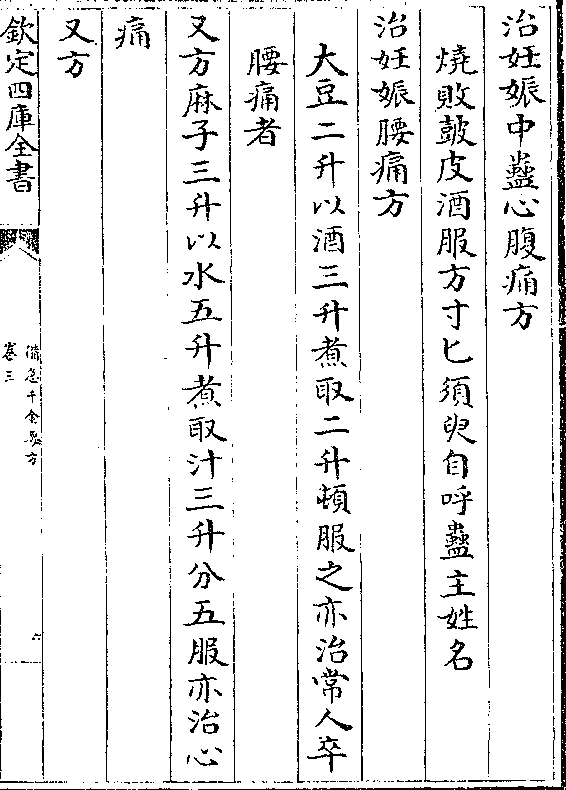 治妊娠中蠱心腹痛方
燒敗鼓皮酒服方寸匕須臾自呼蠱主姓名
治妊娠腰痛方
大豆二升以酒三升煮取二升頓服之亦治常人卒
腰痛者
又方麻子三升以水五升煮取汁三升分五服亦治心
痛
又方
欽定四庫全書
備急千金要方
卷三
六